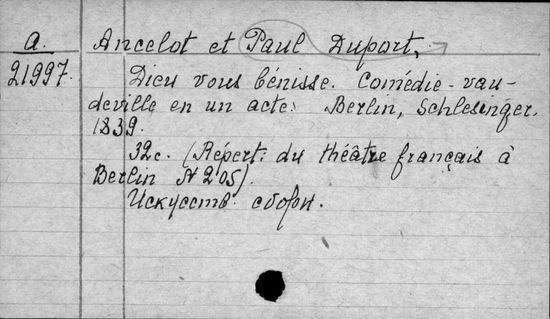 a. Ancelot et Paul Duport,
21997. Dieu vous bénisse. Comédie-vau-
deville en un acte. Berlin, Schlesinger,
1839.
32c. (Répert. du théâtre français à
Berlin N 205).
Искусств. сборн.